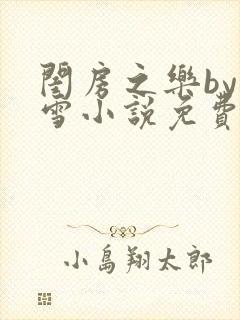 閨房之樂by
雪小說免費
小島翔太郎